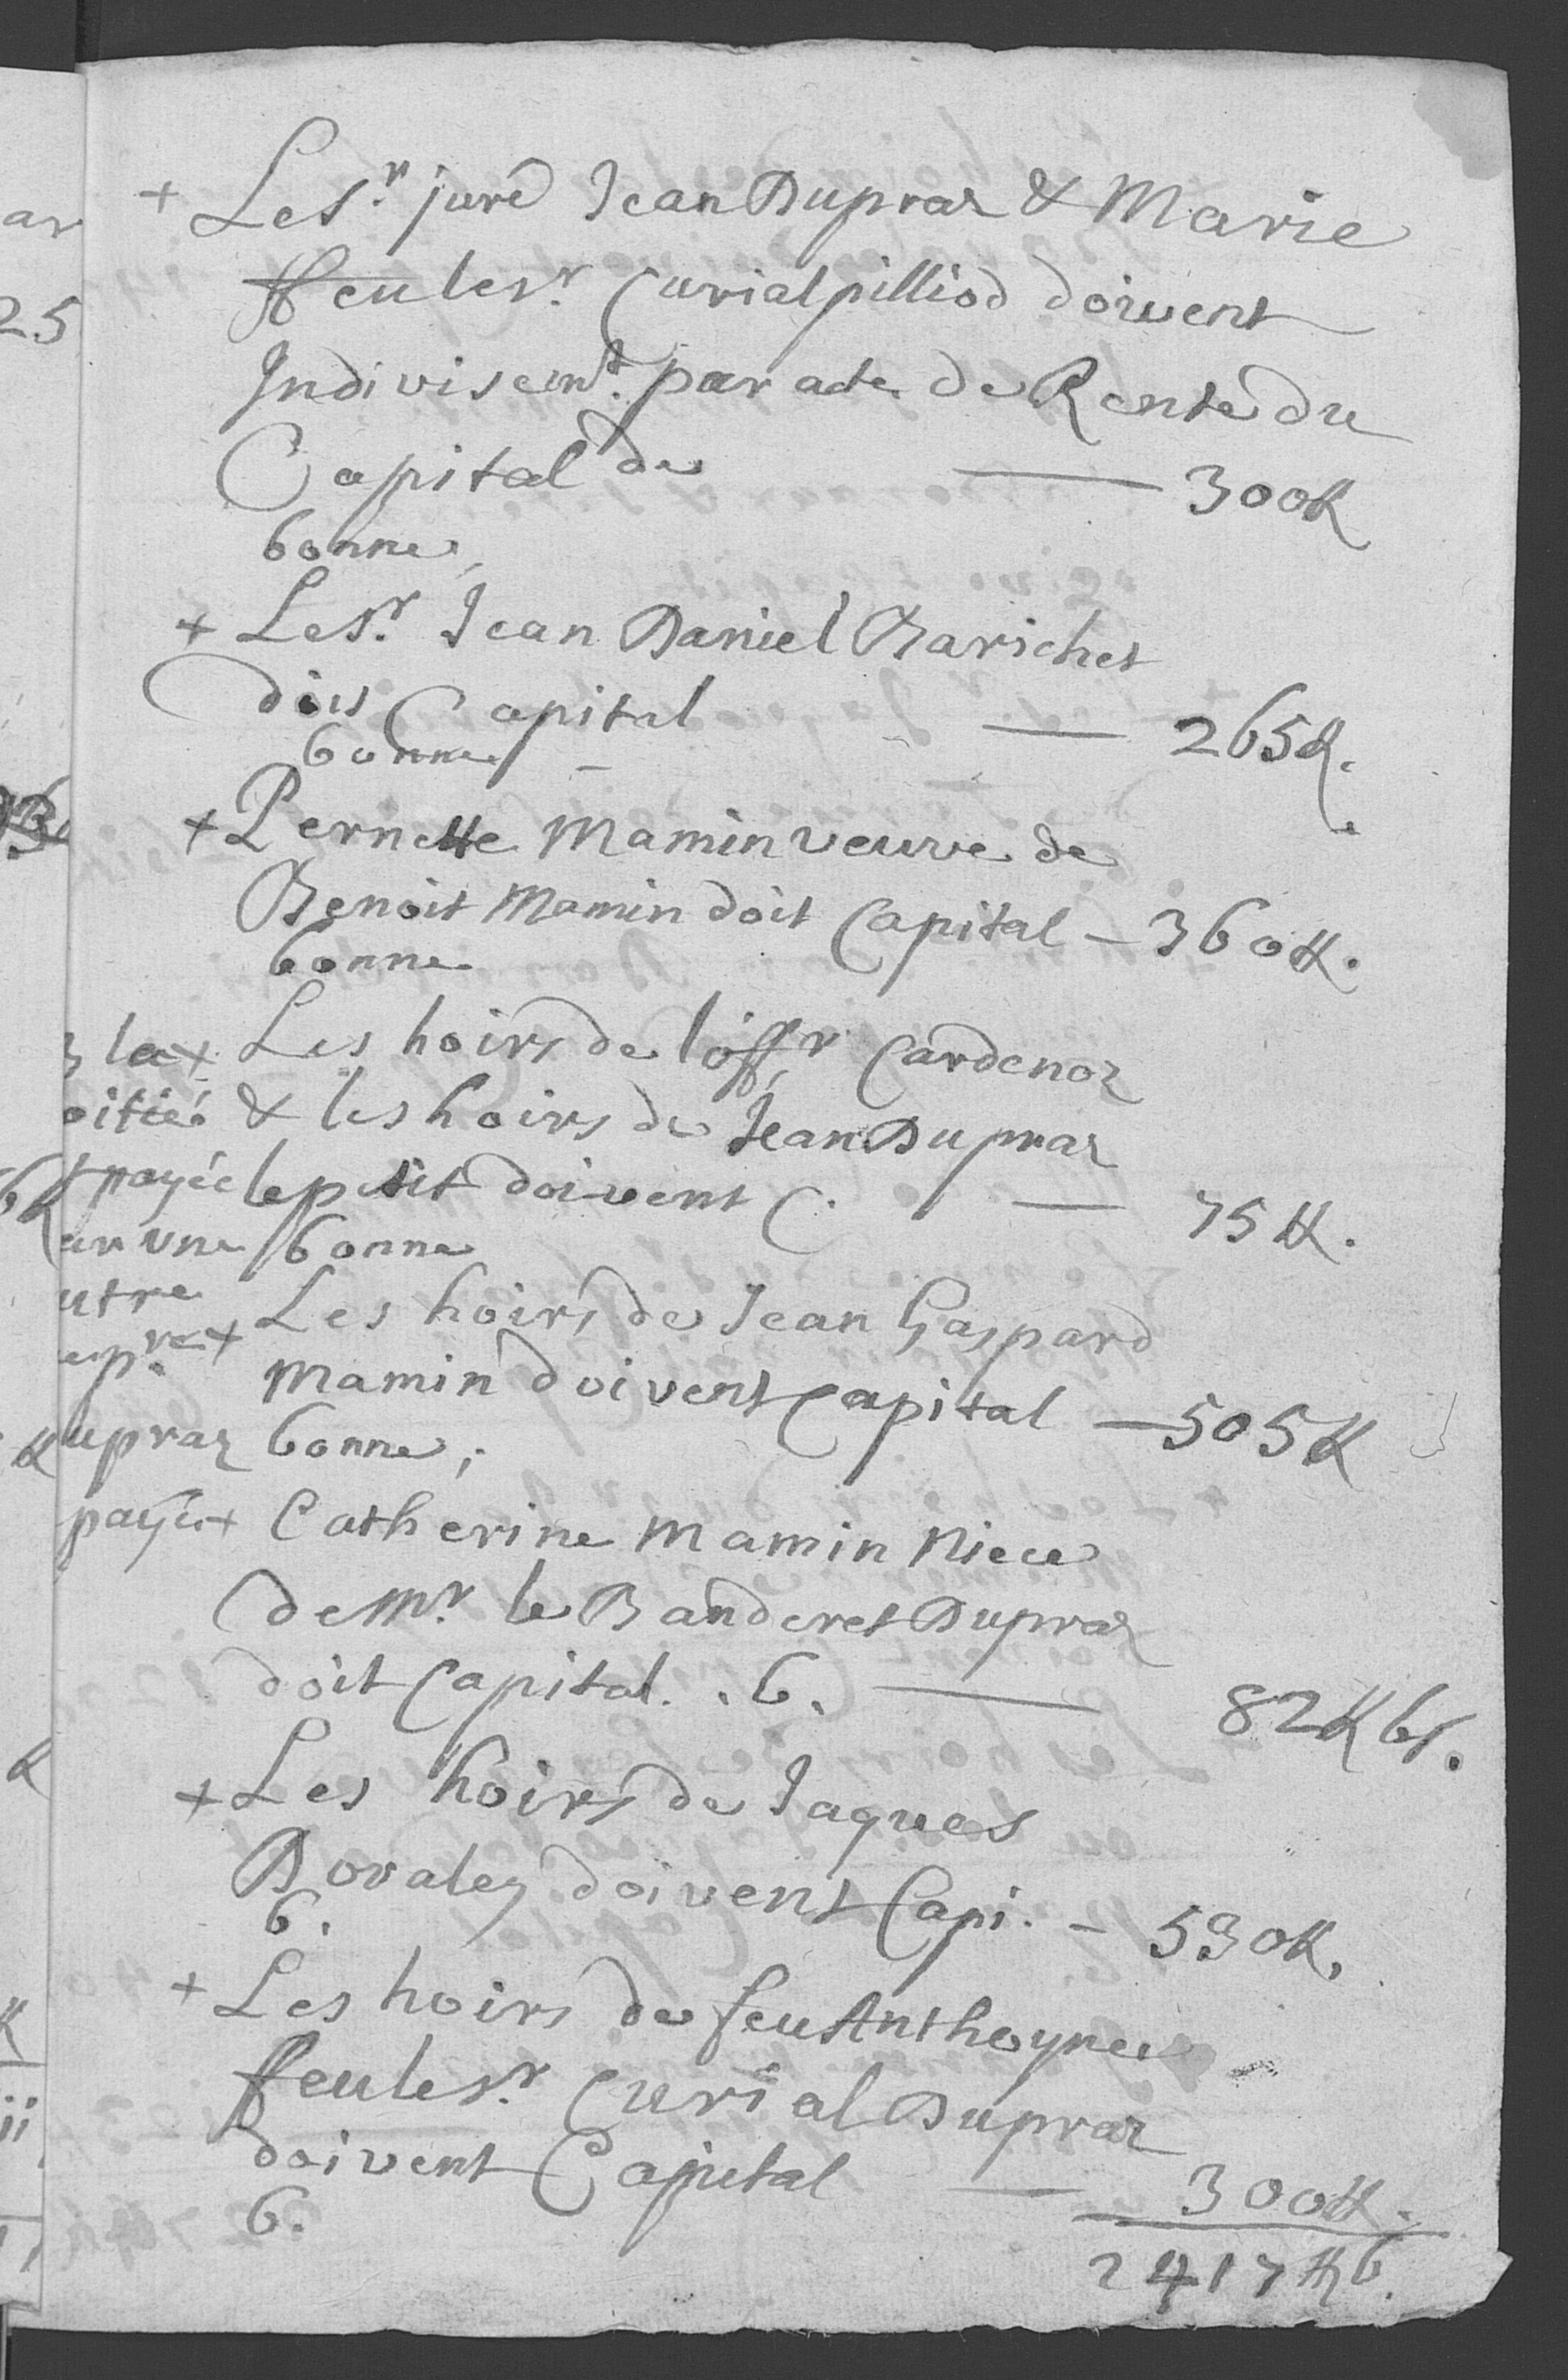 + Le S.r juré Jean Dupraz & Marie
ffeu le sr. Curial pilliod doivent
Indivisemt. par acte de Rente du
Capital de — 300 ℔
bonne,
+ Le Sr. Jean Daniel Barichet
doit Capital — 265 ℔.
bonne
+ Pernette Mamin veuve de
Benoit Mamin doit Capital — 360 ℔.
bonne
la + Les hoirs de l'offr Cardenoz
oitié & les hoirs de Jean Dupraz
payée le petit doivent C. — 75 ℔.
ar une bonne
utre
+ Les hoirs de Jean Gaspard
Mamin doivent Capital — 505 ℔
upraz bonne;
payée + Catherine Mamin Niece
de Mr. le Banderet Dupraz
doit Capital. . b. — 82 ℔ 6 s.
+ Les hoirs de Jaques
Dovaley doivent Capi. — 530 ℔.
b.
+ Les hoirs de feu Anthoyne
ffeu le sr. Curial Dupraz
doivent Capital — 300 ℔.
b.
2417 ℔ 6.
ar
25